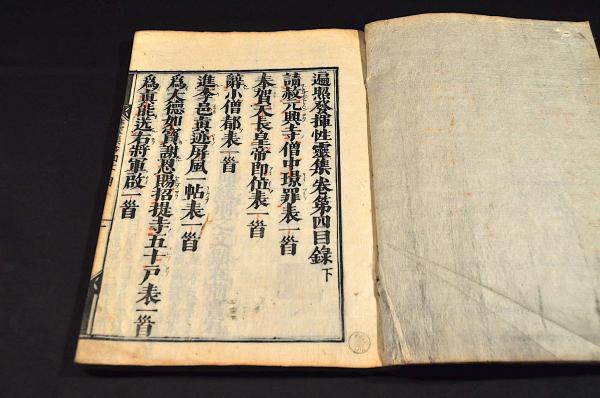 遍照發揮性靈集卷第四目錄下
請赦元興寺僧中璟罪表一首
奉賀天長皇帝即位表一首
辭小僧都表一首
進李邕真迹屏風一帖表一首
爲大德如寶謝恩賜招提寺五十戶表一首
爲真能送右將軍啟一首